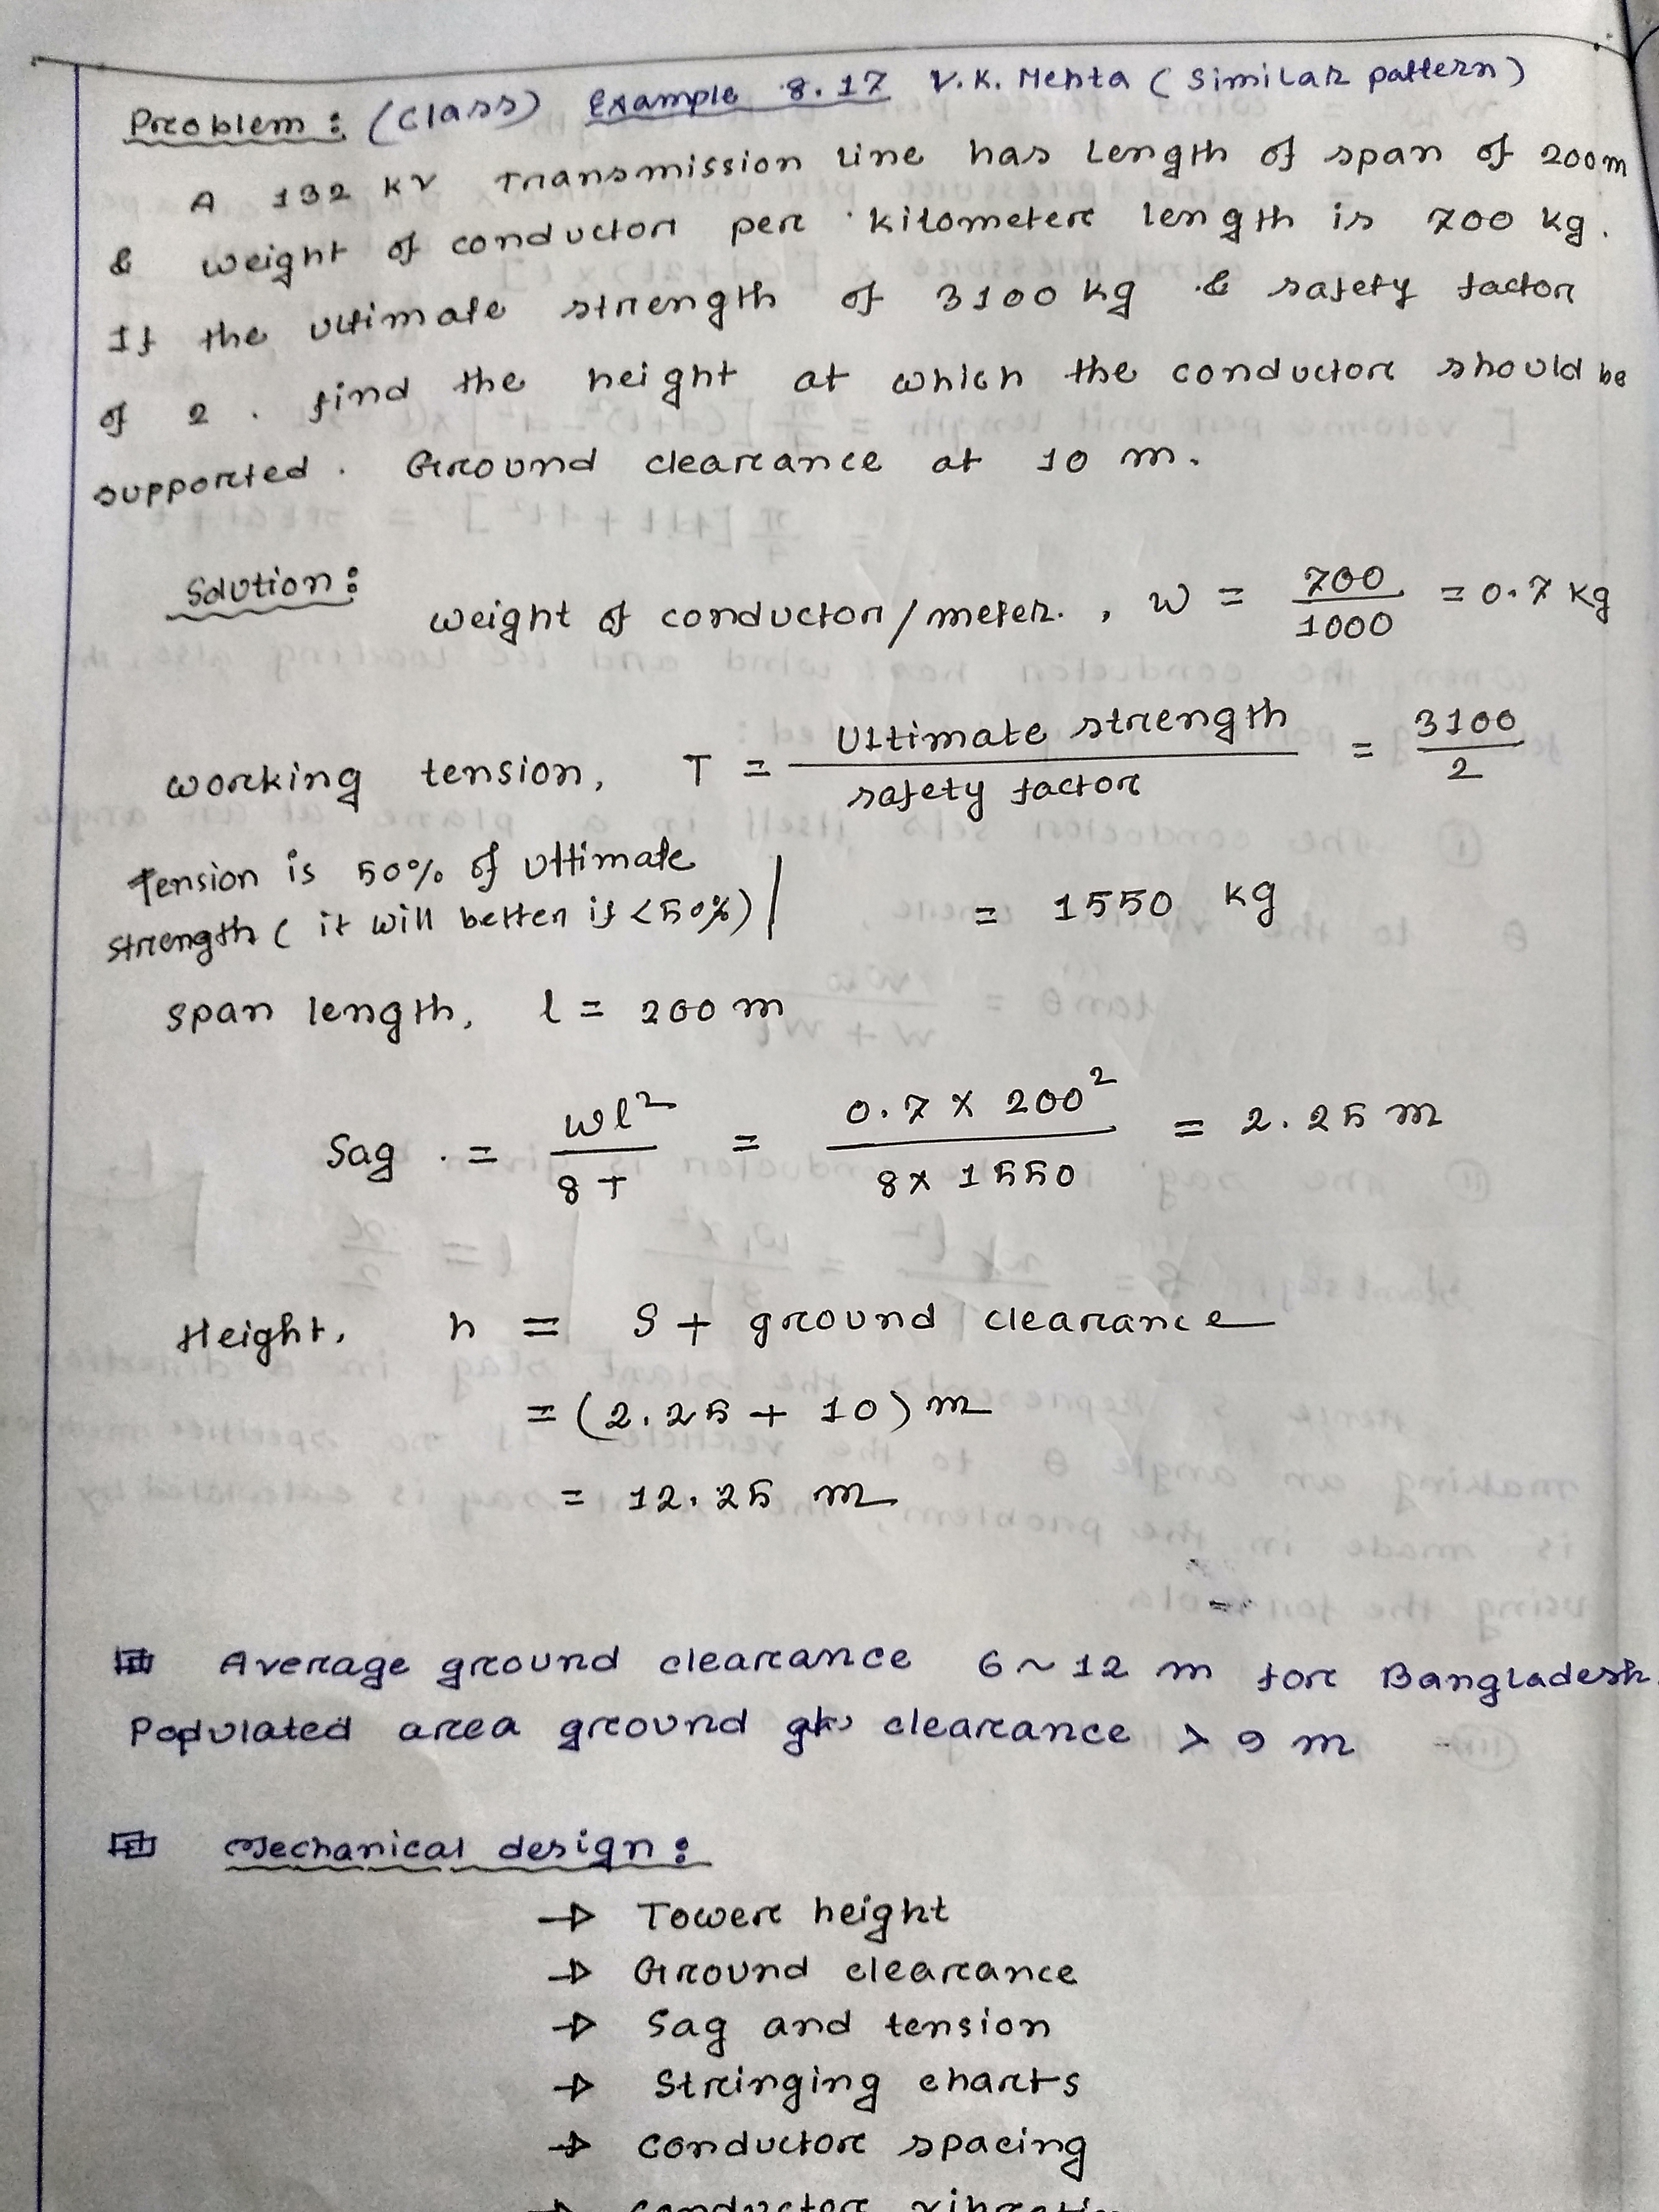 Problem : (class) Example 8.17 V.K. Mehta (Similar pattern)
A 132 KV Transmission line has Length of span of 200m
& weight of conductor per kilometer length is 700 kg.
If the ultimate strength of 3100 kg & safety factor
of 2 . find the height at which the conductor should be
supported . Ground clearance at 10 m.
Solution :
weight of conductor/meter. , w = 700/1000 = 0.7 kg
working tension, T = Ultimate strength/safety factor = 3100/2
Tension is 50% of ultimate
strength ( it will better if <50%)
= 1550 kg
span length, l = 200 m
Sag = wl²/8T = 0.7 x 200²/8x 1550 = 2.25 m
Height, h = S + ground clearance
= (2.25 + 10) m
= 12.25 m
Average ground clearance 6 ~ 12 m for Bangladesh.
Populated area ground clearance > 9 m
Mechanical design :
→ Tower height
→ Ground clearance
→ Sag and tension
→ Stringing charts
→ conductor spacing
→ conductor